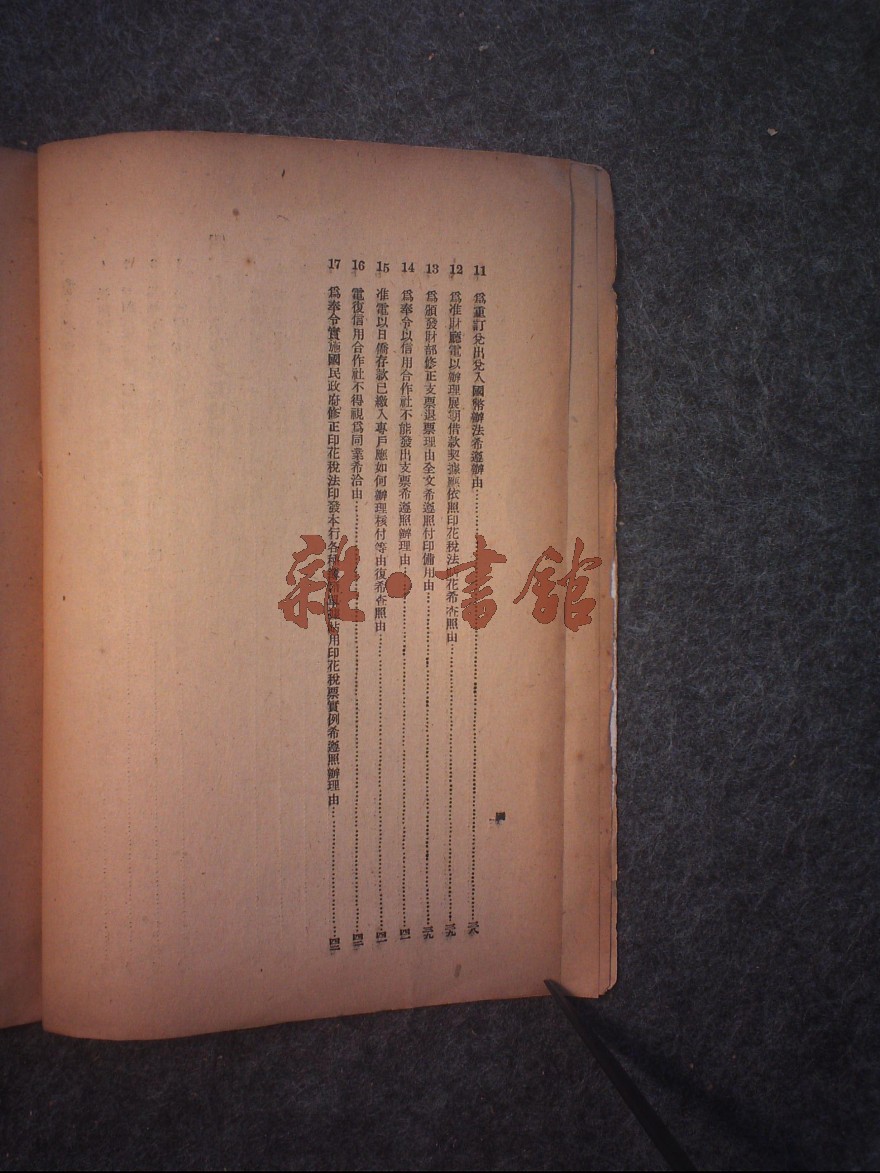 11 爲重訂兌出兌入國幣辦法希遵辦由……三八
12 爲准財廳電以辦理展期借款契據應依照印花稅法 花希查照由……三九
13 爲頒發財部修正支票退票理由全文希遵照付印備用由……三九
14 爲奉令以信用合作社不能發出支票希遵照辦理由……四一
15 准電以日僑存款已繳入專戶應如何辦理核付等由復希查照由……四一
16 電復信用合作社不得視爲同業希洽由……四二
17 爲奉令實施國民政府修正印花稅法印發本行各種 貼用印花稅票實例希遵照辦理由……四二
雜·書館